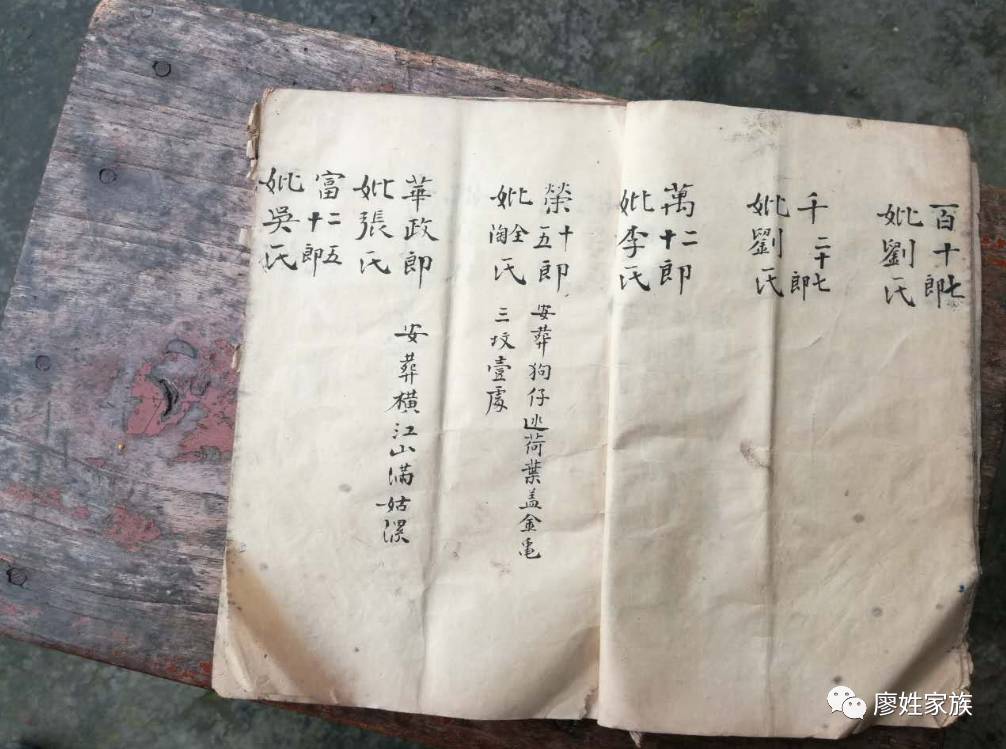 百十七郎
妣劉氏
千二十七郎
妣劉氏
萬十二郎
妣李氏
榮五十郎
安葬狗仔迯荷葉盖金龟
妣全陶氏
三坟壹處
華政郎
安葬橫江山满姑漯
妣張氏
富十二五郎
妣吳氏
廖姓家族